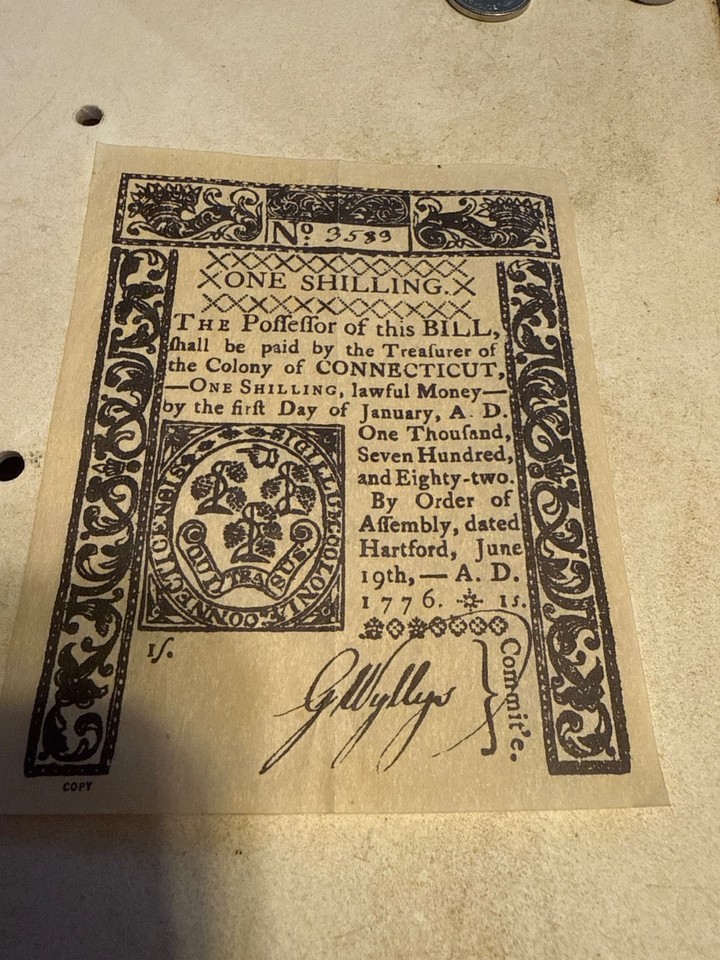 Nº 3583
ONE SHILLING.
THE Poſſeſſor of this BILL,
ſhall be paid by the Treaſurer of
the Colony of CONNECTICUT,
—ONE SHILLING, lawful Money—
by the firſt Day of January, A. D.
One Thouſand,
Seven Hundred,
and Eighty-two.
By Order of
Aſſembly, dated
Hartford, June
19th,— A. D.
1776. 1s.
SIGILLUM COLONIÆ CONNECTICENSIS
QUI TRA SUS
1ſ.
G Wyllys
Commit'e.
COPY